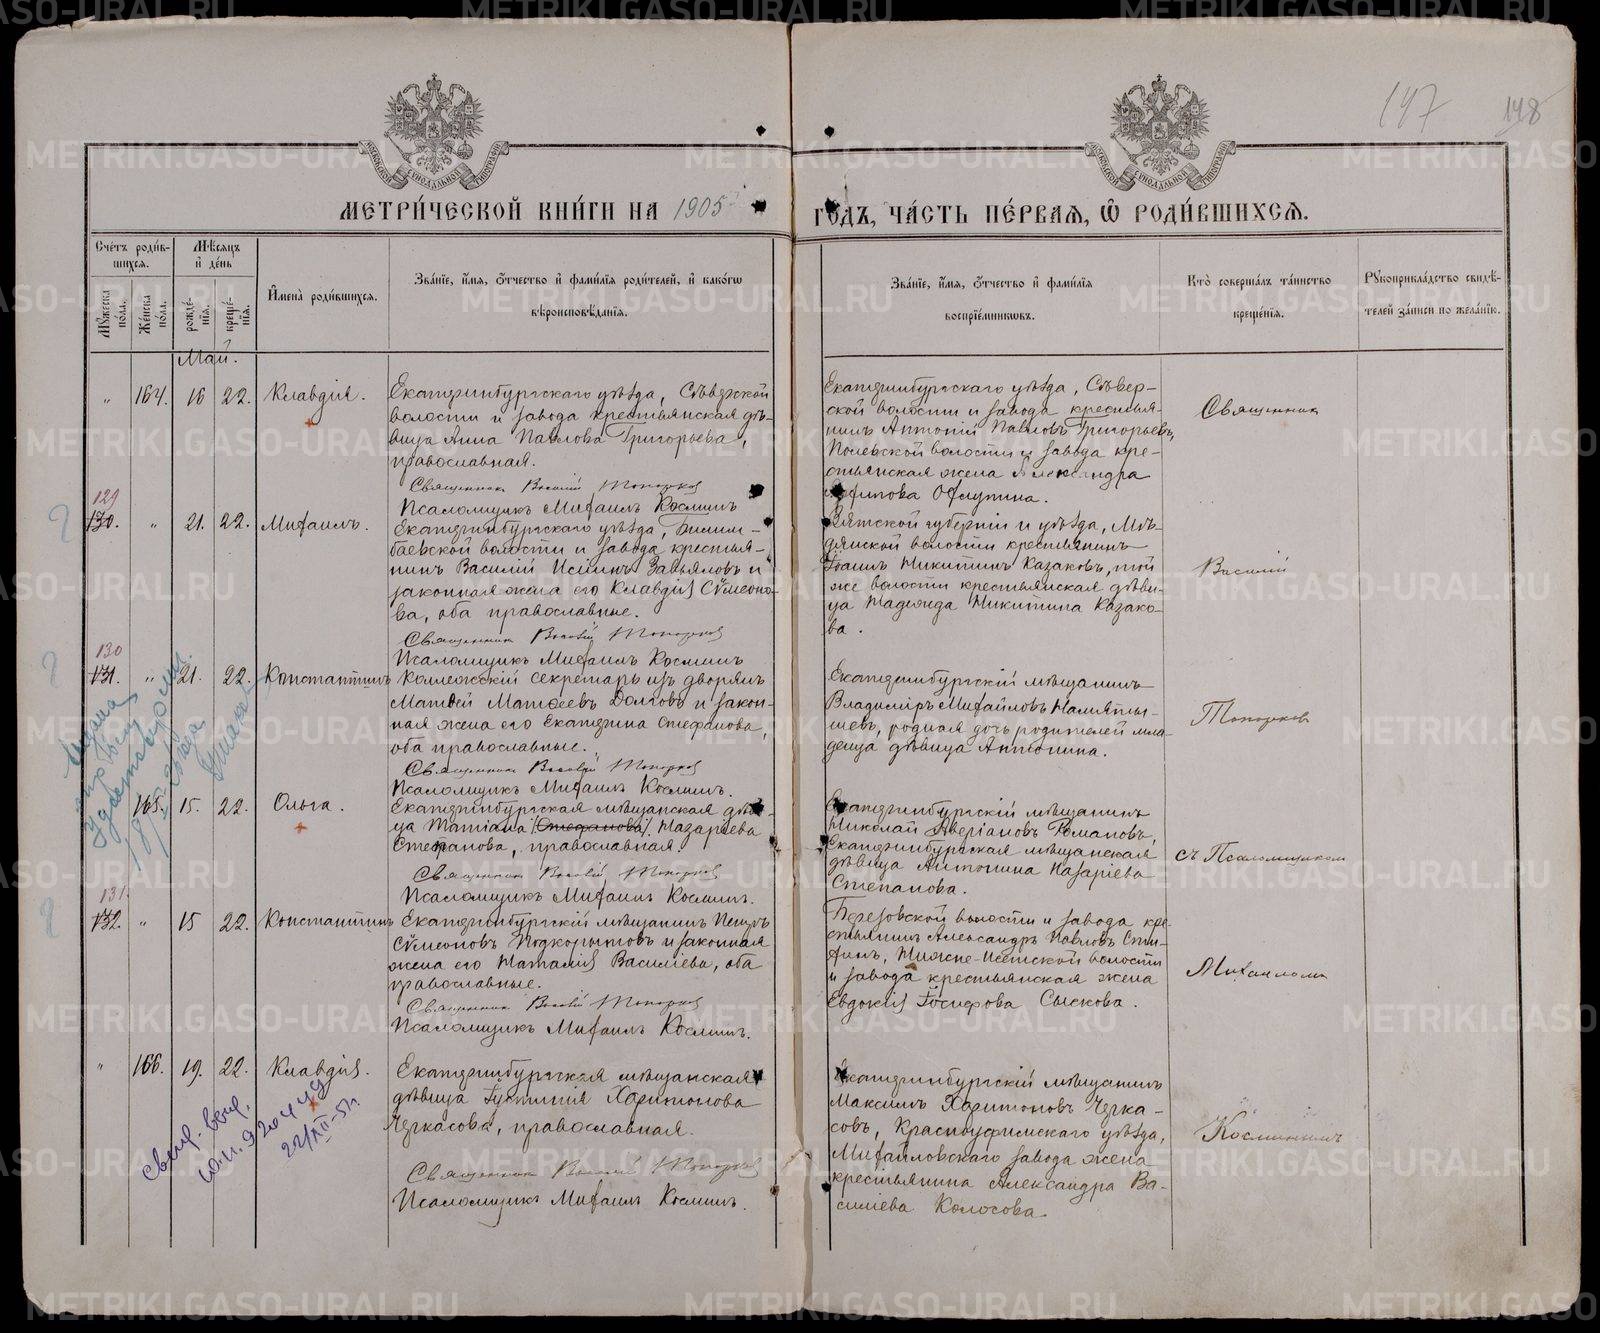 147 148
МЕТРИ́ЧЕСКОЙ КНИ́ГИ НА 1905
ГОДЪ, ЧА́СТЬ ПЕ́РВАЯ, Ѿ РОДИ́ВШИХСЯ.
Счетъ роди́в-
шихся.
Мѣсяцъ
и де́нь
Мꙋжеска по́ла.
Же́нска по́ла.
рожде́-нїя.
креще́-нїя.
И҆мена̀ роди́вшихся.
Зва́нїе, и҆́мѧ, ѻ҆́тчество и҆ фами́лїѧ роди́телей, и҆ како́гѡ
вѣроисповѣ́данїѧ.
Зва́нїе, и҆́мѧ, ѻ҆́тчество и҆ фами́лїѧ
воспрїе́мниковъ.
Кто̀ соверша́лъ та́инство
креще́нїѧ.
Рꙋкоприкла́дство свидѣ́-
телей за́писи по жела́нїю.
Май.
" 164. 16 22. Клавдія.
Екатеринбургскаго уѣзда, Сѣверской
волости и завода крестьянская дѣ-
вица Анна Павлова Григорьева,
православная.
Священник Василій Топорков
Псаломщикъ Михаилъ Косминъ
Екатеринбургскаго уѣзда, Сѣвер-
ской волости и завода крестья-
нинъ Антоній Павловъ Григорьевъ,
Полевской волости и завода кре-
стьянская жена Александра
Священник
129
130. " 21. 22. Михаилъ.
Екатеринбургскаго уѣзда, Билим-
баевской волости и завода крестья-
нинъ Василій Завьяловъ и
законная жена его Клавдія Сѷмеоно-
ва, оба православные.
Священник Василій Топорков
Псаломщикъ Михаилъ Косминъ
Вятской губерніи и уѣзда, Мѣ-
дянской волости крестьянинъ
Іоаннъ Никитинъ Казаковъ, той
же волости крестьянская дѣви-
ца Надежда Никитина Казако-
ва.
Василій
130
131. " 21. 22. Константинъ
Коллежскій секретарь изъ дворянъ
Матвѣй Матвѣевъ Долговъ и закон-
ная жена его Екатерина Стефанова,
оба православные.
Священник Василій Топорков
Псаломщикъ Михаилъ Косминъ.
Екатеринбургскій мѣщанинъ
Владиміръ Михайловъ
шевъ, родная дочь родителей мла-
денца дѣвица Антонина.
Топорков
165. 15. 22. Ольга.
Екатеринбургская мѣщанская дѣви-
ца Татіана (Стефанова) Назаріева
Степанова, православная.
Священник Василій Топорков
Псаломщикъ Михаилъ Косминъ.
Екатеринбургскій мѣщанинъ
Николай Аверіановъ Романовъ,
Екатеринбургская мѣщанская
дѣвица Антонина Назаріева
Степанова.
съ Псаломщиком
131.
132. " 15 22. Константинъ
Екатеринбургскій мѣщанинъ Петръ
Сѷмеоновъ Подкорытовъ и законная
жена его Наталія Василіева, оба
православные.
Священник Василій Топорков
Псаломщикъ Михаилъ Косминъ.
Березовской волости и завода кре-
стьянинъ Александръ Павловъ
Нижне-Исетской волости
и завода крестьянская жена
Евдокія Іосифова Сыскова.
Михаилом
" 166. 19. 22. Клавдія.
Екатеринбургская мѣщанская
дѣвица Іустинія Харитонова
Черкасова, православная.
Священник Василій Топорков
Псаломщикъ Михаилъ Косминъ.
Екатеринбургскій мѣщанинъ
Максимъ Харитоновъ Черка-
совъ, Красноуфимскаго уѣзда,
Михайловскаго завода жена
крестьянина Александра Ва-
силіева Колосова.
Косминым
22/XII-51г.
METRIKI.GASO-URAL.RU